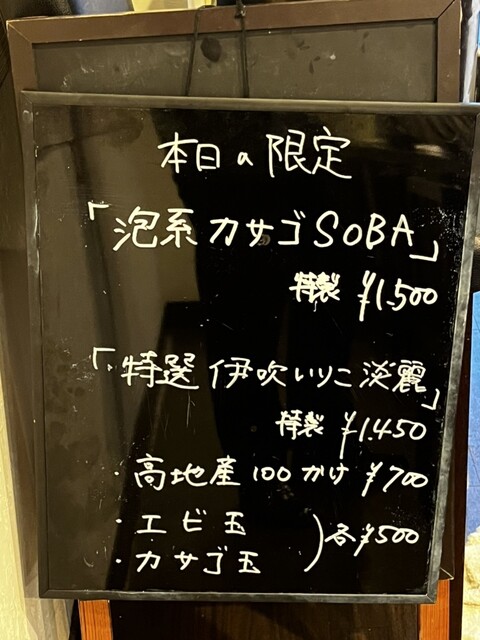 本日の限定
「泡系カサゴSOBA」
特製 ¥1.500
「特選 伊吹いりこ淡麗」
特製 ¥1.450
・高地産100かけ ¥700
・エビ玉
・カサゴ玉
)各¥500